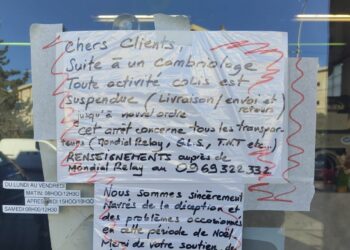 Chers Clients,
Suite à un Cambriolage
Toute activité colis est
Suspendue (Livraison/envoi et retours)
jusqu'à nouvel ordre
cet arret concerne tous les Transpor-
teurs (Mondial Relay, G.L.S, TNT etc...)
RENSEIGNEMENTS auprès de
Mondial Relay au 0969322332
Nous Sommes sincèrement
Navrés de la déception et
des problèmes occasionnés
en cette période de Noël.
Merci de votre soutien
DU LUNDI AU VENDREDI
MATIN: 08H00/12H30
APRES MIDI 15H00/19H00
SAMEDI 08H00/12H30